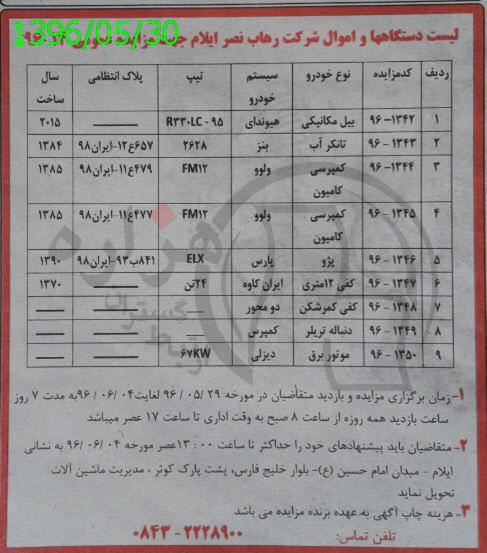 1396/05/30
لیست دستگاهها و اموال شرکت رهاب نصر ایلام
ردیف کدمزایده نوع خودرو سیستم خودرو تیپ پلاک انتظامی سال ساخت
۱ ۱۳۴۲-۹۶ بیل مکانیکی هیوندای R۳۳۰LC - ۹۵ ——— ۲۰۱۵
۲ ۱۳۴۳ - ۹۶ تانکر آب بنز ۲۶۲۸ ۶۵۷ع۱۲-ایران۹۸ ۱۳۸۴
۳ ۱۳۴۴-۹۶ کمپرسی کامیون ولوو FM۱۲ ۴۷۹ع۱۱-ایران۹۸ ۱۳۸۵
۴ ۱۳۴۵ - ۹۶ کمپرسی کامیون ولوو FM۱۲ ۴۷۷ع۱۱-ایران۹۸ ۱۳۸۵
۵ ۱۳۴۶ - ۹۶ پژو پارس ELX ۸۴۱ب۹۳-ایران۹۸ ۱۳۹۰
۶ ۱۳۴۷ - ۹۶ کفی ۱۲متری ایران کاوه ۲۴تن ——— ۱۳۷۰
۷ ۱۳۴۸ - ۹۶ کفی کمرشکن دو محور —— ——— ——
۸ ۱۳۴۹ - ۹۶ دنباله تریلر کمپرس —— ——— ——
۹ ۱۳۵۰ - ۹۶ موتور برق دیزلی ۶۷KW ——— ——
۱- زمان برگزاری مزایده و بازدید متقاضیان در مورخه ۲۹ /۰۵ / ۹۶ لغایت۰۴ /۰۶ /۹۶به مدت ۷ روز
ساعت بازدید همه روزه از ساعت ۸ صبح به وقت اداری تا ساعت ۱۷ عصر میباشد
۲- متقاضیان باید پیشنهادهای خود را حداکثر تا ساعت ۰۰ : ۱۳عصر مورخه ۰۴ /۰۶ /۹۶ به نشانی
ایلام - میدان امام حسین (ع)- بلوار خلیج فارس، پشت پارک کوثر ، مدیریت ماشین آلات
تحویل نماید
۳- هزینه چاپ آگهی به عهده برنده مزایده می باشد
تلفن تماس: ۲۲۲۸۹۰۰ - ۰۸۴۳
هزاره